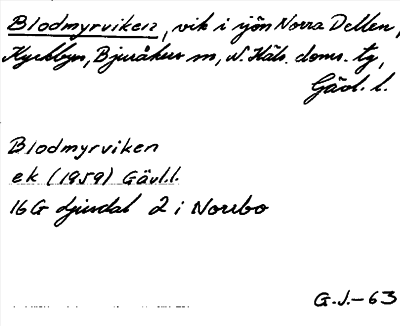 Blodmyrviken, vik i sjön Norra Dellen,
Kyrkbyn, Bjuråkers sn, N. Häls. doms. tg,
Gävl. l.
Blodmyrviken
ek (1959) Gävl.l.
16G djurdal 2 i Norrbo
G.J.-63